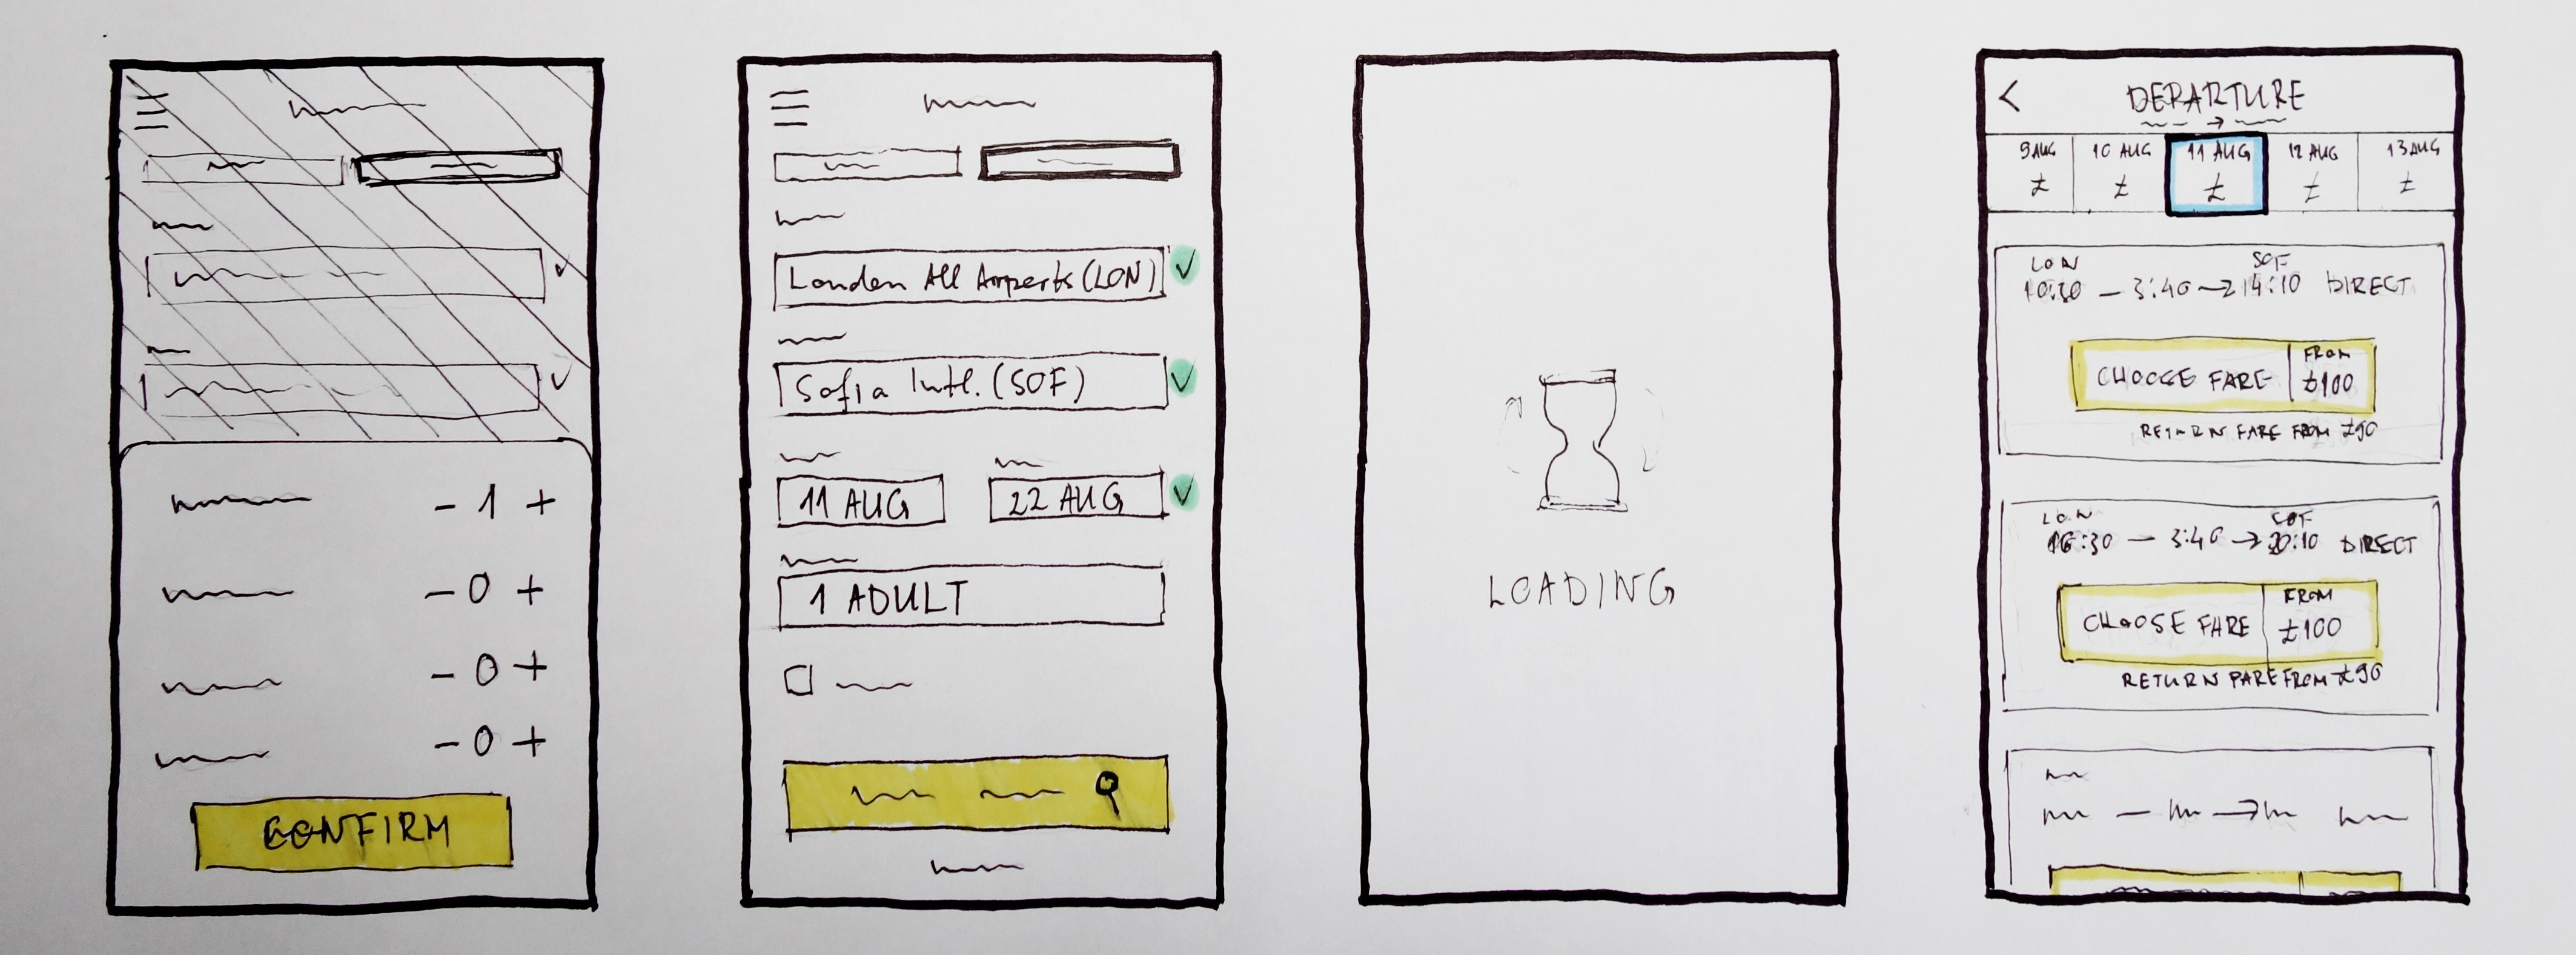 - 1 +
- 0 +
- 0 +
- 0 +
CONFIRM
London All Airports (LON)
Sofia Intl. (SOF)
11 AUG
22 AUG
1 ADULT
LOADING
< DEPARTURE
9 AUG 10 AUG 11 AUG 12 AUG 13 AUG
£ £ £ £ £
LON SOF
10:30 — 3:40 → 14:10 DIRECT
CHOOSE FARE
FROM
£100
RETURN FARE FROM £90
LON SOF
16:30 — 3:40 → 20:10 DIRECT
CHOOSE FARE
FROM
£100
RETURN FARE FROM £90